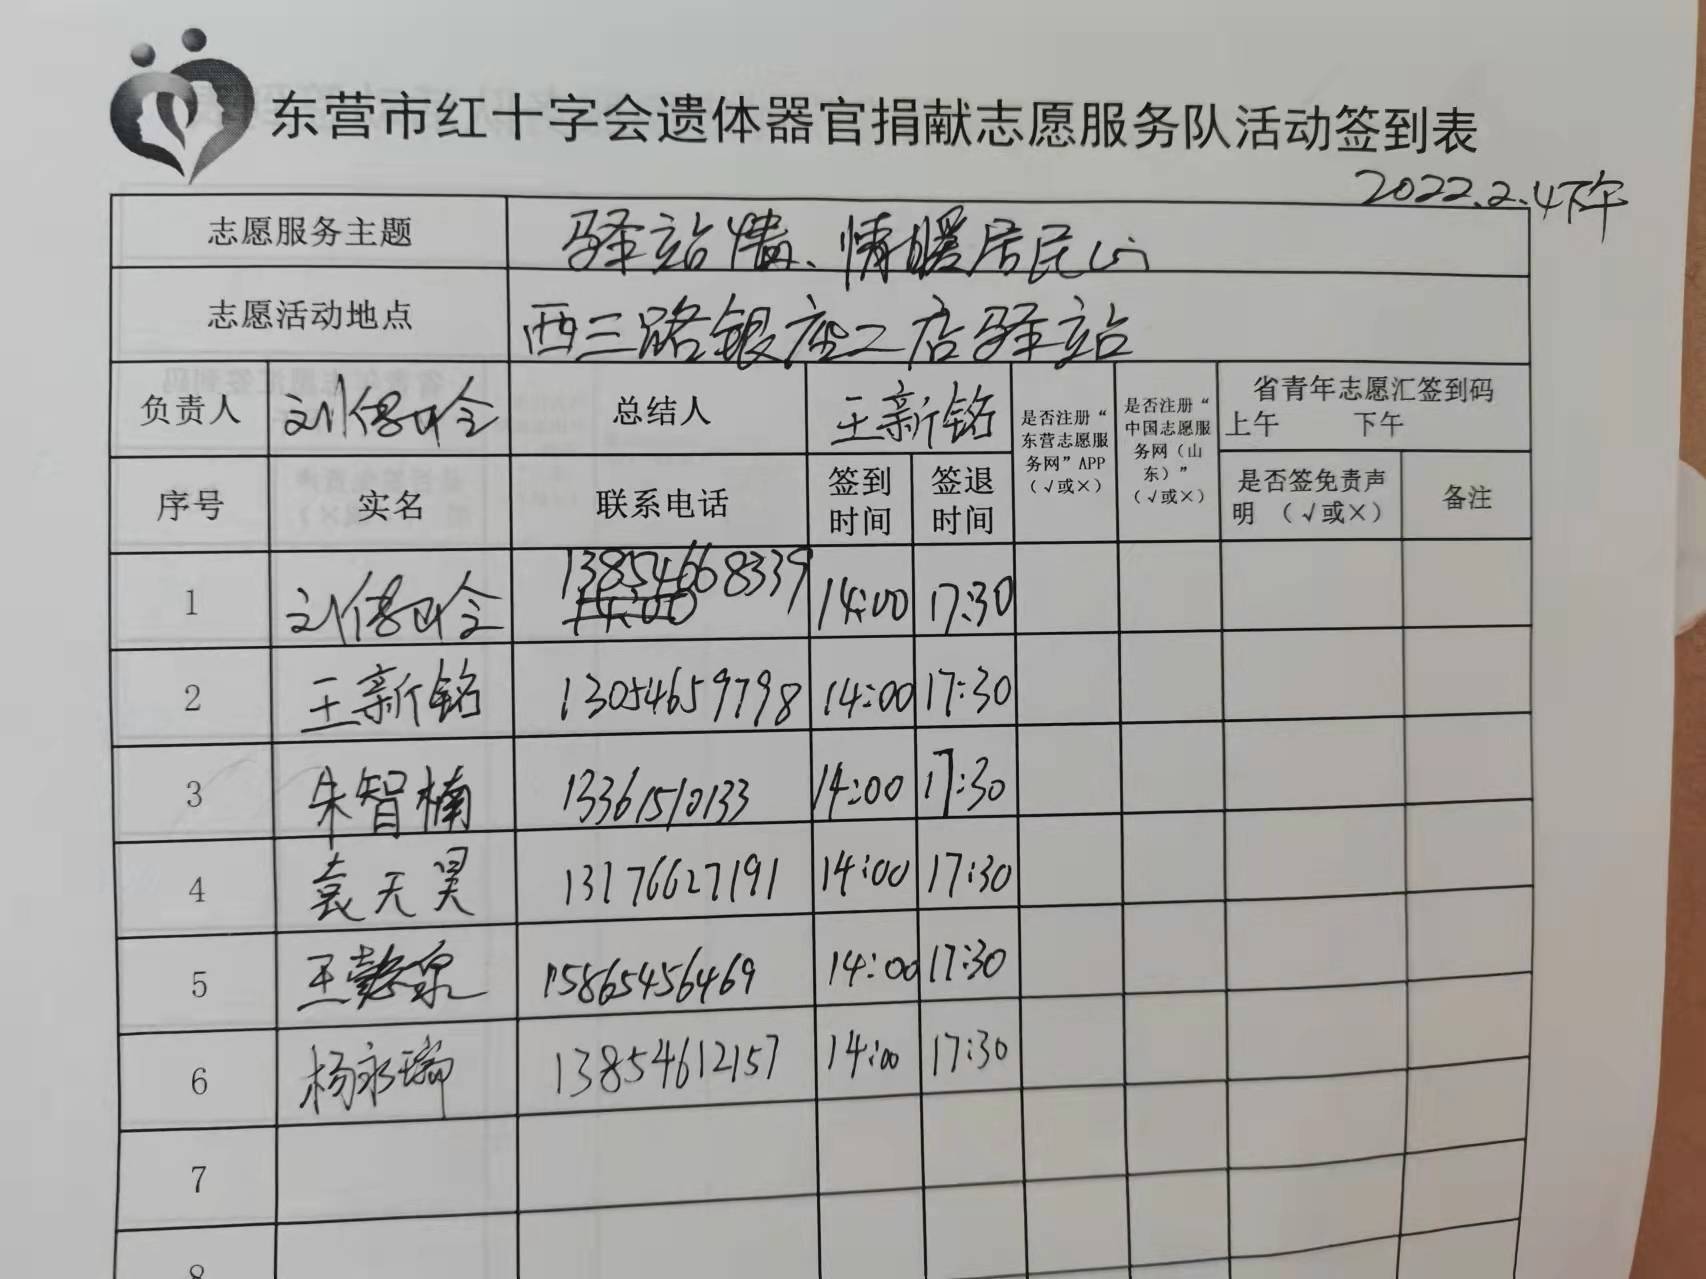 东营市红十字会遗体器官捐献志愿服务队活动签到表
2022.2.4下午
志愿服务主题 驿站情、情暖居民心
志愿活动地点 西三路银座二店驿站
负责人 刘 总结人 王新铭 是否注册“东营志愿服务网”APP（√或×） 是否注册“中国志愿服务网（山东）”（√或×） 省青年志愿汇签到码
上午 下午
序号 实名 联系电话 签到时间 签退时间 是否签免责声明 （√或×） 备注
1 刘 13854668339 14:00 14:00 17:30
2 王新铭 13054659798 14:00 17:30
3 朱智楠 13361510133 14:00 17:30
4 袁天昊 13176627191 14:00 17:30
5 王 泉 15865456469 14:00 17:30
6 杨永瑞 13854612157 14:00 17:30
7
8